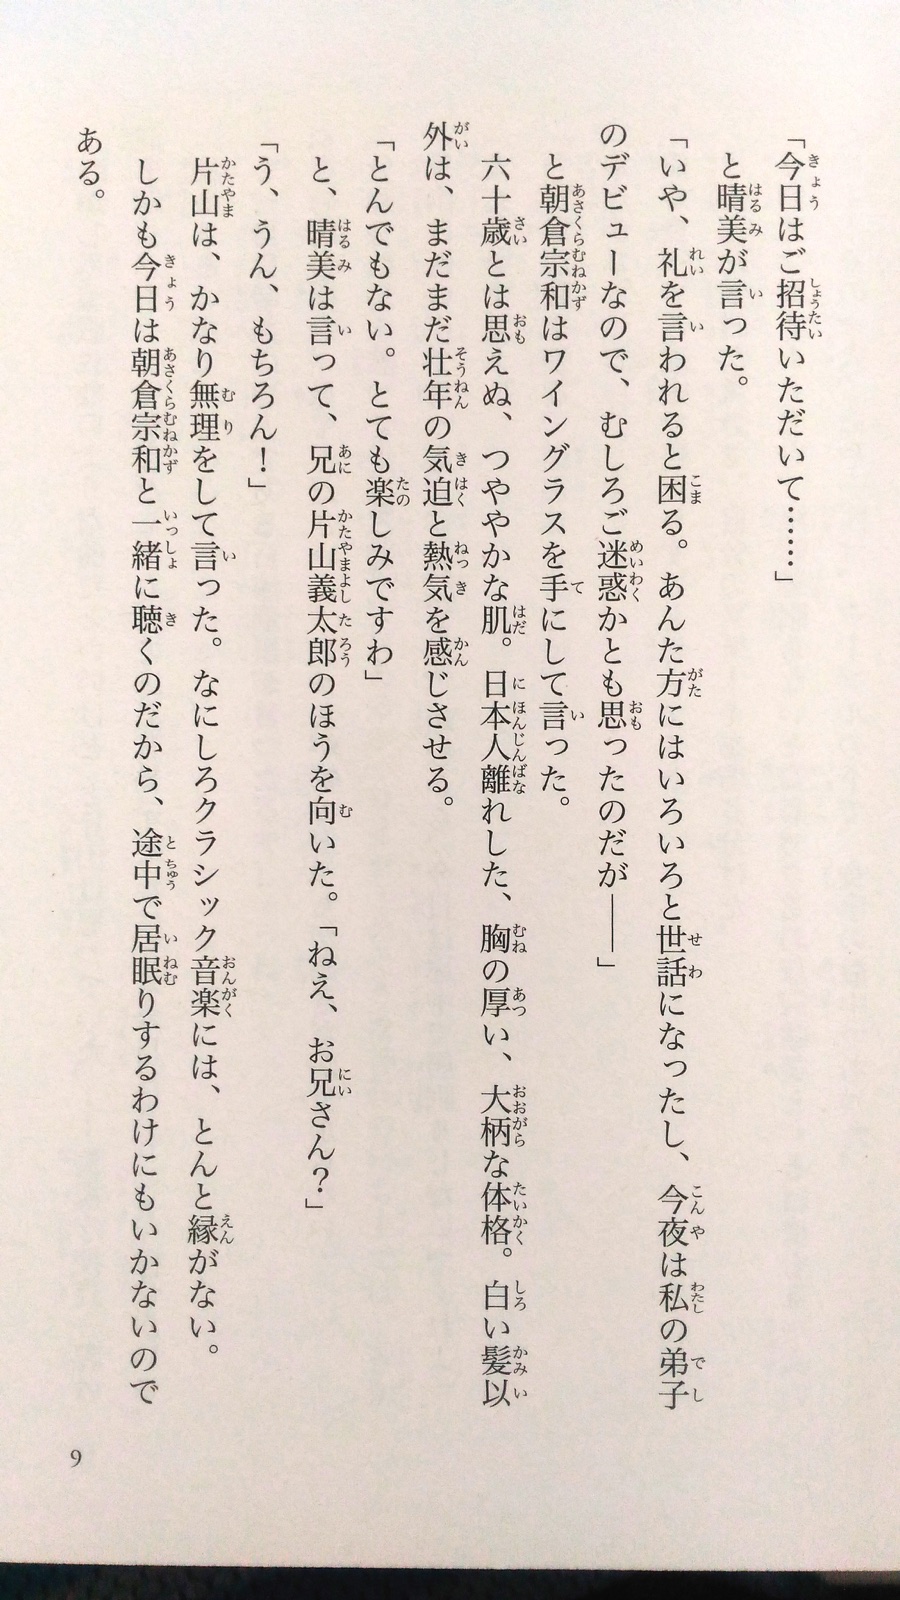 「今日はご招待いただいて……」
と晴美が言った。
「いや、礼を言われると困る。あんた方にはいろいろと世話になったし、今夜は私の弟子
のデビューなので、むしろご迷惑かとも思ったのだが――」
と朝倉宗和はワイングラスを手にして言った。
六十歳とは思えぬ、つややかな肌。日本人離れした、胸の厚い、大柄な体格。白い髪以
外は、まだまだ壮年の気迫と熱気を感じさせる。
「とんでもない。とても楽しみですわ」
と、晴美は言って、兄の片山義太郎のほうを向いた。「ねえ、お兄さん？」
「う、うん、もちろん！」
片山は、かなり無理をして言った。なにしろクラシック音楽には、とんと縁がない。
しかも今日は朝倉宗和と一緒に聴くのだから、途中で居眠りするわけにもいかないので
ある。
9